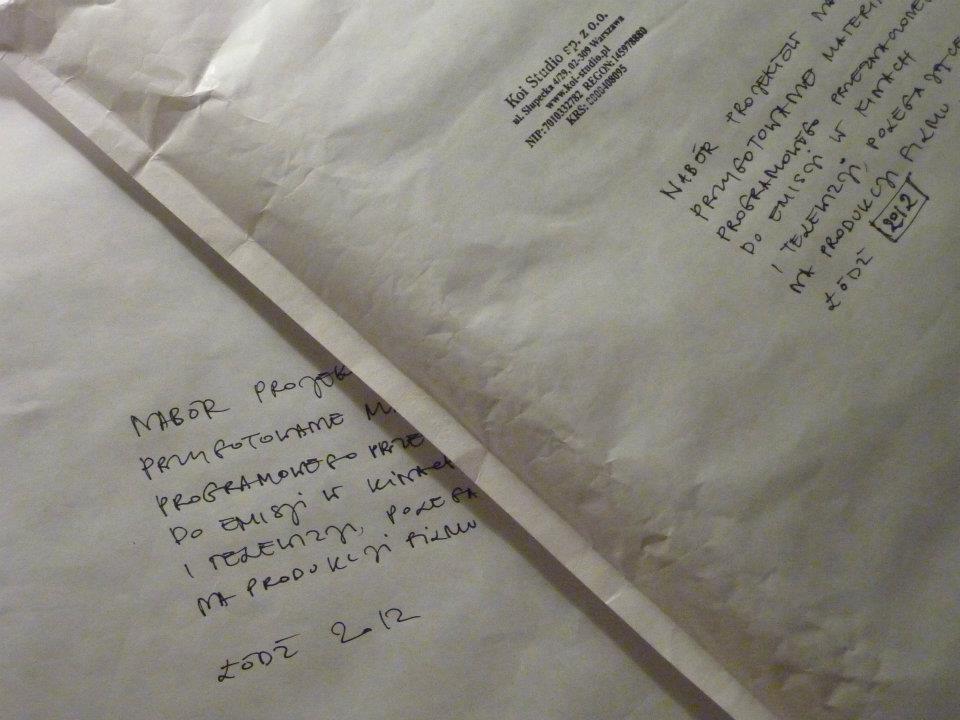 Koi Studio sp. z o.o.
ul. Słupecka 4/29, 02-309 Warszawa
www.koi-studio.pl
NIP: 7010332782 REGON: 145978880
KRS: 0000408095
NABÓR PROJEKTÓW NA
PRZYGOTOWANIE MATERI
PROGRAMOWEGO PRZEZNACZONE
DO EMISJI W KINACH
I TELEWIZJI, POLEGAJĄCE
NA PRODUKCJI FILMU
ŁÓDŹ 2012
NABÓR PROJEK
PRZYGOTOWANIE MA
PROGRAMOWEGO PRZE
DO EMISJI W KINACH
I TELEWIZJI, POLEGA
NA PRODUKCJI FILMU
ŁÓDŹ 2012